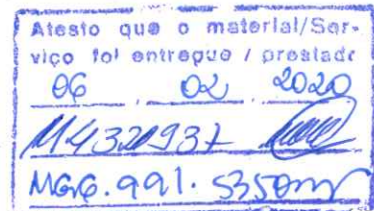 Atesto que o material/Ser-
viço foi entregue / prestado
06 02 2020
M4320937
MG6.991.535